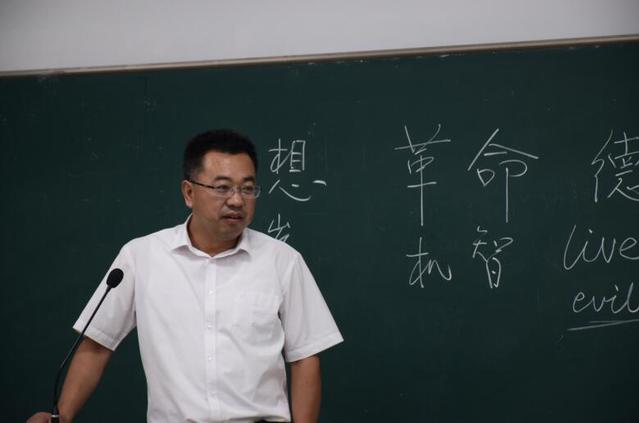 想 革命 德
机智 live
evil